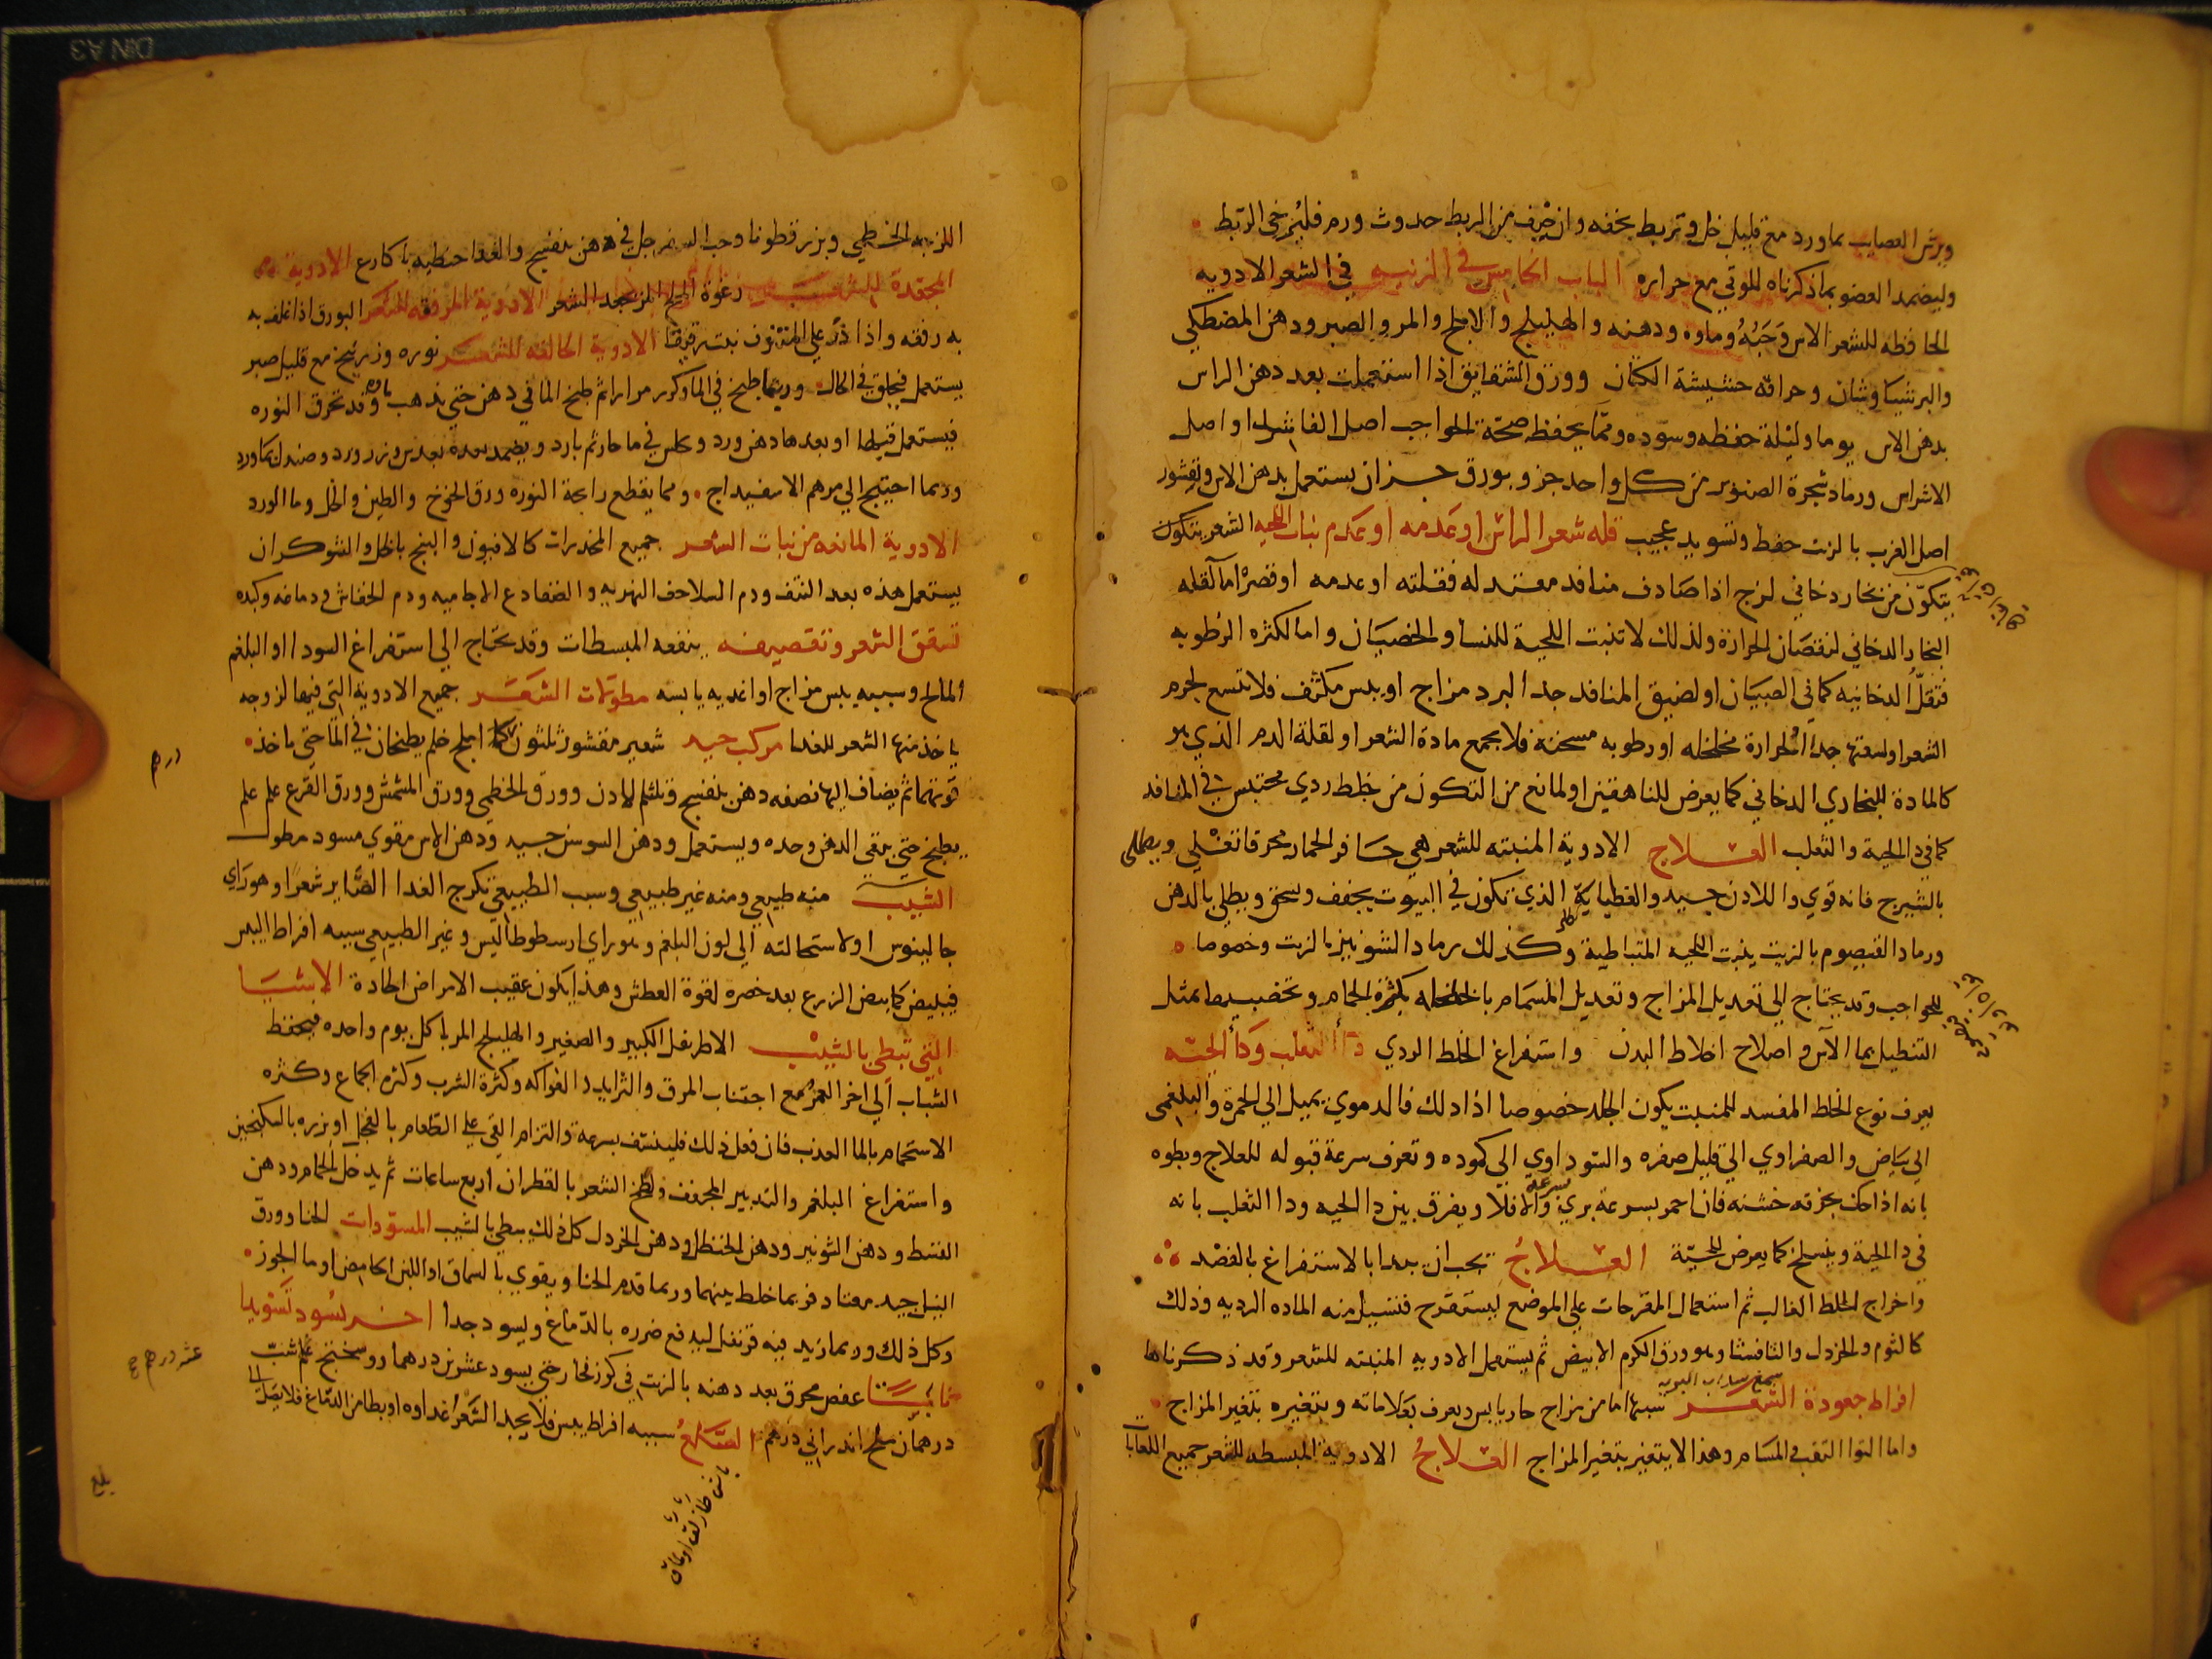 ويرش العصايب بماورد مع قليل خل وتربط بخفه وان خيف من الربط حدوث ورم فليرخي الربط
وليضمد العضو بما ذكرناه للوثي مع حراره الباب الخامس في الزينه في الشعر الادويه
الحافظه للشعر الاس وحبه وماوه ودهنه والهليلج والاملج والمر والصبر ودهن المصطكي
والبرشياوشان وحراقه حشيشة الكتان وورق الشقايق اذا استعملت بعد دهن الراس
بدهن الاس يوما وليلة حفظه وسوده ومما يحفظ صحة الحواجب اصل الفاشرا او اصل
الاشراس ورماد شجرة الصنوبر من كل واحد جزو بورق جزان يستعمل بدهن الاس وقشور
اصل الغرب بالزيت حفظ وتسويد عجيب قله شعر الراس او عدمه او عدم نبات اللحيه الشعر يتكون
يتكون من بخار دخاني لزج اذا صادف منافد معتدله فقلته او عدمه او قصره اما لقله
البخار الدخاني لنقصان الحرارة ولذلك لا تنبت اللحية للنسا والخصيان واما لكثره الرطوبه
فتقل الدخانيه كما في الصبيان او لضيق المنافد جدا لبرد مزاج او يبس مكثف فلا تتسع لجرم
الشعر او لسعتها جدا لحرارة مخلخله او رطوبه مسخنه فلا يجمع مادة الشعر او لقلة الدم الذي هو
كالمادة للبخار الدخاني كما يعرض للناهقين او لمانع من التكون من خلط ردي محتبس في المنافد
كما في دا الحية والثعلب العلاج الادوية المنبته للشعر هي حافر الحمار محرقا تغلي ويطلى
بالشيرج فانه قوي واللادن جيد والقطاية الذي تكون في البيوت يجفف ويسحق ويطلي بالدهن
ورماد القيصوم بالزيت ينبت اللحيه المتباطية وكذلك رماد الشونيز بالزيت وخصوصا
للحواجب وقد يحتاج الي تعديل المزاج وتعديل المسام بالخلخله بكثرة الحمام وتخصيبها بمثل
التنطيل بما الآس واصلاح اخلاط البدن واستفراغ الخلط الردي دا الثعلب ودا الحيه
يعرف نوع الخلط المفسد للمنبت بكون الجلد خصوصا اذا دلك فالدموي يميل الي الحمرة والبلغمي
الي بياض والصفراوي الي قليل صفره والسوداوي الي كموده وتعرف سرعة قبوله للعلاج وبطوه
بانه اذا حك بخرقه خشنه فان احمر بسرعة بري بسرعة والا فلا ويفرق بين دا الحيه ودا الثعلب بانه
في دا الحية وينسلخ كما يعرض للحية العلاج يجب ان يبدا بالاستفراغ بالفصد
واخراج الخلط الغالب ثم استعمال المقرحات علي الموضع ليستقرح فتسيل منه الماده الرديه وذلك
كالثوم والخردل والثافسيا وهو ورق الكرم الابيض ثم يستعمل الادويه المنبته للشعر وقد ذكرناها
افراط جعودة الشعر سببها اما من مزاج حار يابس ويعرف بعلاماته وبتغيره بتغير المزاج
واما التوا الثقب في المسام وهذا لا يتغير بتغير المزاج العلاج الادوية المبسطه للشعر جميع اللعابات
اللزجه الخطمي وبزر قطونا وحب السفرجل في دهن بنفسج والغدا حنطيه باكارع الادوية
المجعدة للشعر رغوة الملح المر تجعد الشعر الادوية المرققه للشعر البورق اذا غلف به
به رققه واذا ذر علي المنتوف نبت رقيقا الادوية الحالقه للشعر نوره وزرنيخ مع قليل صبر
يستعمل فيحلق في الحال وربما طبخ في الما وكرر مرارا ثم طبخ الما في دهن حتي يذهب ماوه وقد تحرق النوره
فيستعمل قبلها او بعدها دهن ورد ويجلس في ما حار ثم بارد ويضمد بعده بعدس وزر ورد وصندل بماورد
وربما احتيج الي مرهم الاسفيداج ومما يقطع رايحة النوره ورق الخوخ والطين والخل وما الورد
الادوية المانعه من نبات الشعر جميع المخدرات كالافيون والبنج بالخل والشوكران
يستعمل هذه بعد النتف ودم السلاحف النهريه والضفادع الاجاميه ودم الخفاش ودماغه وكبده
تشقق الشعر وتقصيفه ينفعه المبسطات وقد يحتاج الي استفراغ السودا او البلغم
المالح وسببه يبس مزاج او اغديه يابسه مطولات الشعر جميع الادوية التي فيها لزوجه
ياخذ منها الشعر للغدا مركب جيد شعير مقشور ثلثون املج يطبخان في الما حتي ياخذ
درهم
قوتهما ثم يضاف اليها نصفه دهن بنفسج وثلثه لادن وورق الخطمي وورق المشمش وورق القرع
يطبخ حتي يبقي الدهن وحده ويستعمل ودهن السوسن جيد ودهن الاس مقوي مسود مطول
الشيب منه طبيعي ومنه غير طبيعي وسبب الطبيعي تكرج الغدا الصاير شعرا وهو راي
جالينوس او لاستحالته الي لون البلغم وهو راي ارسطوطاليس وغير الطبيعي سببه افراط اليبس
فيبيض كما يبيض الزرع بعد خضره لقوة العطش وهذا يكون عقيب الامراض الحادة الاشيا
التي تبطي بالشيب الاطريفل الكبير والصغير والهليلج المربا كل يوم واحده فيحفظ
الشباب الي اخر العمر مع اجتناب المرق والثرايد والفواكه وكثرة الشرب وكثره الجماع وكثره
الاستحمام بالما العذب فان فعل ذلك فلينشف بسرعة والتزام القي علي الطعام بالفجل او بزره بالسكنجبين
واستفراغ البلغم والتدبير المجفف ولطخ الشعر بالقطران اربع ساعات ثم يدخل الحمام ودهن
القسط ودهن الشونيز ودهن الحنظل ودهن الخردل كل ذلك يبطي بالشيب المسودات الحنا وورق
النيل جيد معتاد فربما خلط بينهما وربما قدم الحنا ويقوي بالسماق او اللبن الحامض او ما الجوز
وكل ذلك وربما زيد فيه قرنفل ليدفع ضرره بالدماغ ويسود جدا اخر يسود تسويدا
ثابتا عفص محرق بعد دهنه بالزيت في كوز فخار حتي يسود عشرين درهما روسختج شب
عشر درهم
درهمان ملح اندراني درهم الصلع سببه افراط يبس فلا يجد الشعر غداوه او بطامن الدماغ فلا يصل
بلغ